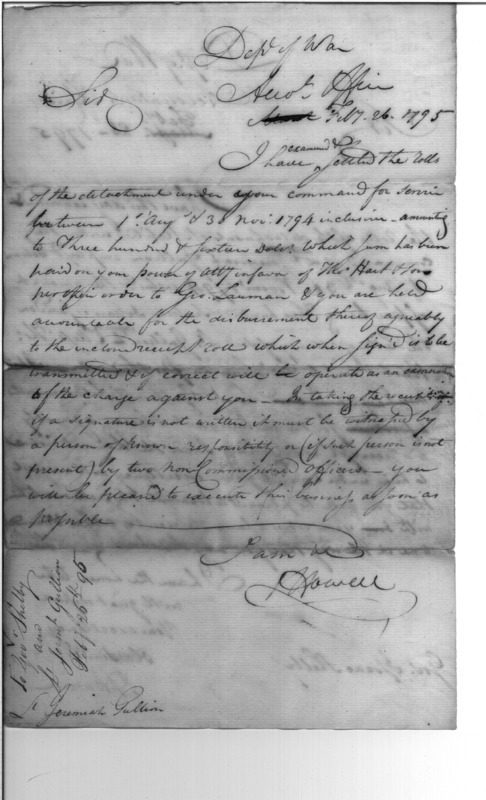 Dept. of War
Acco.ts Office
Sir
Feb.y 26. 1795
I have examined & settled the rolls
of the detachment under your command for service
between 1st. Augt. & 30 Nov. 1794 inclusive - amounting
to Three hundred & sixteen dols. which sum has been
paid on your power of atty in favor of Thos. Hart & Son
per their order to Geo. Lauman & you are held
accountable for the disbursement thereof agreeably
to the inclosed receipt roll which when sign'd is to be
transmitted & if correct will be operate as an
of the charge against you — In taking the receipts
if a signature is not written it must be witnessed by
a person of known responsibility or (if such person is not
present) by two Non Commissioned Officers — you
will be pleased to execute this business as soon as
possible
I am &c
J Howell
To Gov. Shelby
and
Lt. Joseph Gullion
Feby 26th. 95
Jeremiah Gullion